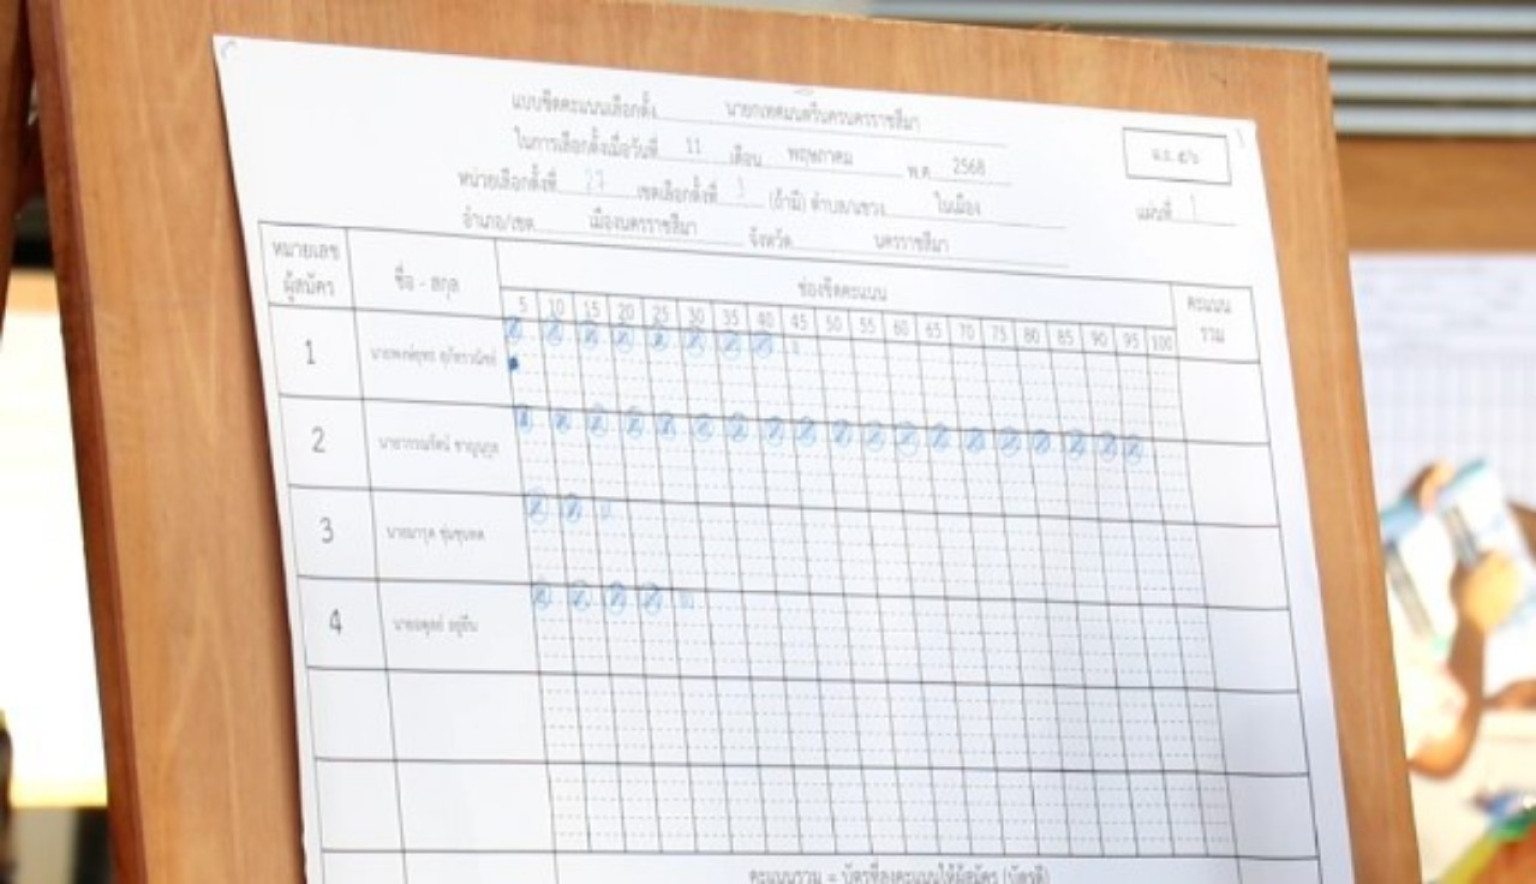 แบบขีดคะแนนเลือกตั้ง นายกเทศมนตรีนครนครราชสีมา
ในการเลือกตั้งเมื่อวันที่ 11 เดือน พฤษภาคม พ.ศ. 2568
หน่วยเลือกตั้งที่ 27 เขตเลือกตั้งที่ 3 (ถ้ามี) ตำบล/แขวง ในเมือง
แผ่นที่ 1
อำเภอ/เขต เมืองนครราชสีมา จังหวัด นครราชสีมา
หมายเลขผู้สมัคร ชื่อ - สกุล ช่องขีดคะแนน คะแนนรวม
5 10 15 20 25 30 35 40 45 50 55 60 65 70 75 80 85 90 95 100
1
2
3
4
คะแนนรวม = บัตรที่ลงคะแนนให้ผู้สมัคร (บัตรดี)